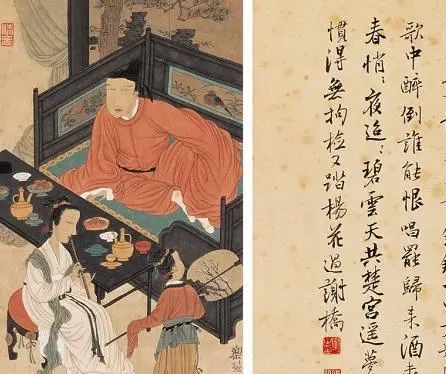 歌中醉倒誰能恨唱罷歸来酒未
春悄〻夜迢〻碧雲天共楚宮遥夢
慣得無拘檢又踏楊花過謝橋